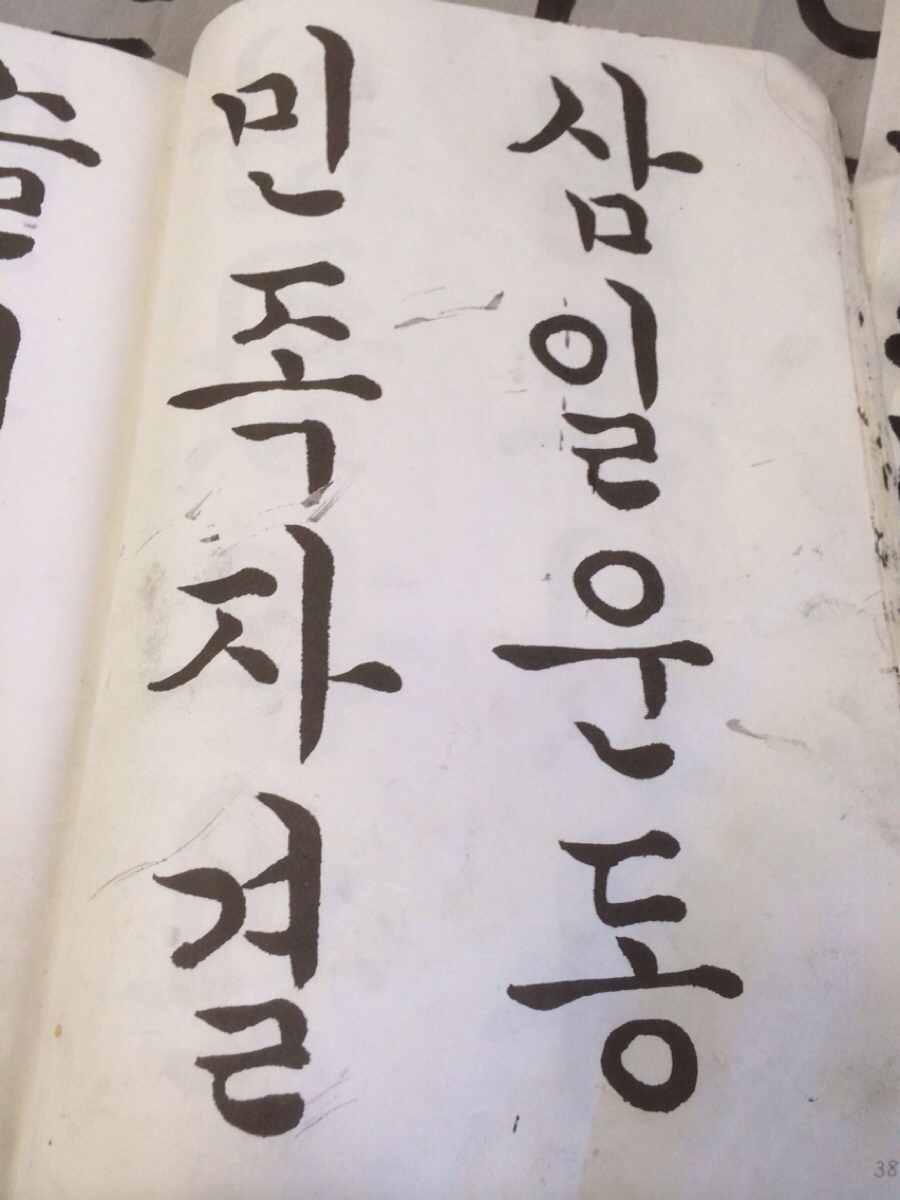 삼일운동
민족자결
38